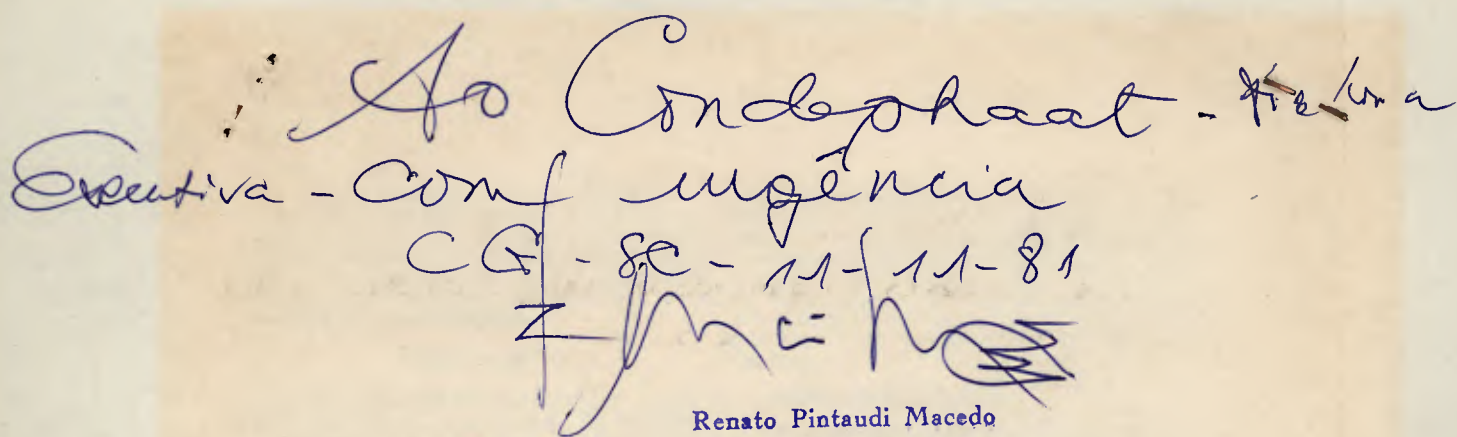 Ao Condephaat -
Executiva - com urgência
CG - SC - 11-11-81
Renato Pintaudi Macedo